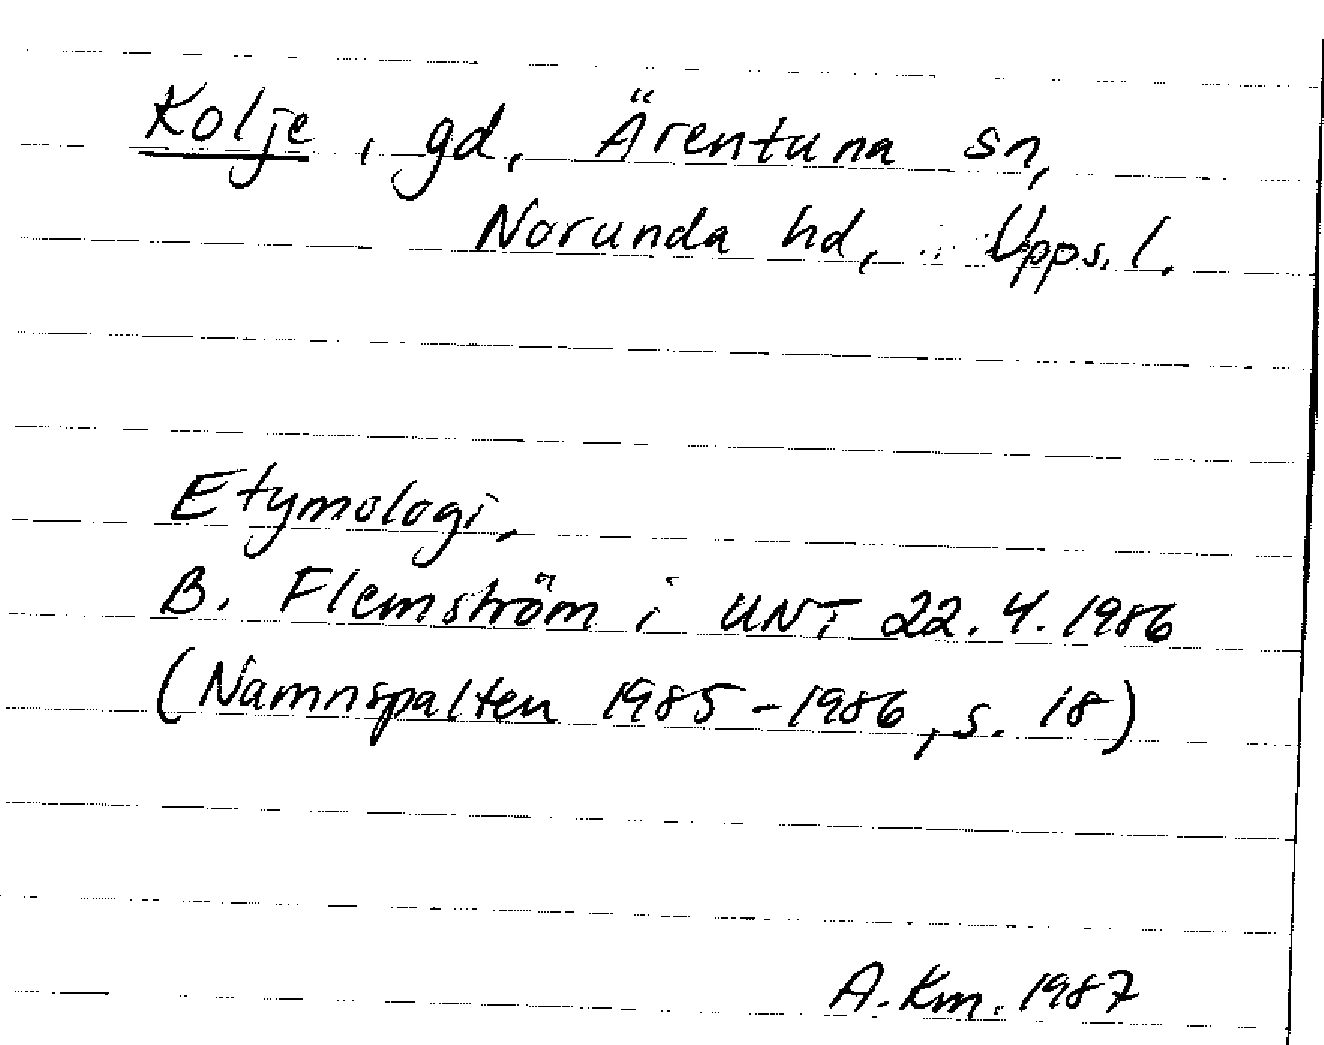 Kolje, gd, Ärentuna sn,
Norunda hd, Upps. l.
Etymologi,
B. Flemström i UNT 22.4.1986
(Namnspalten 1985-1986, s. 18)
A.Km. 1987